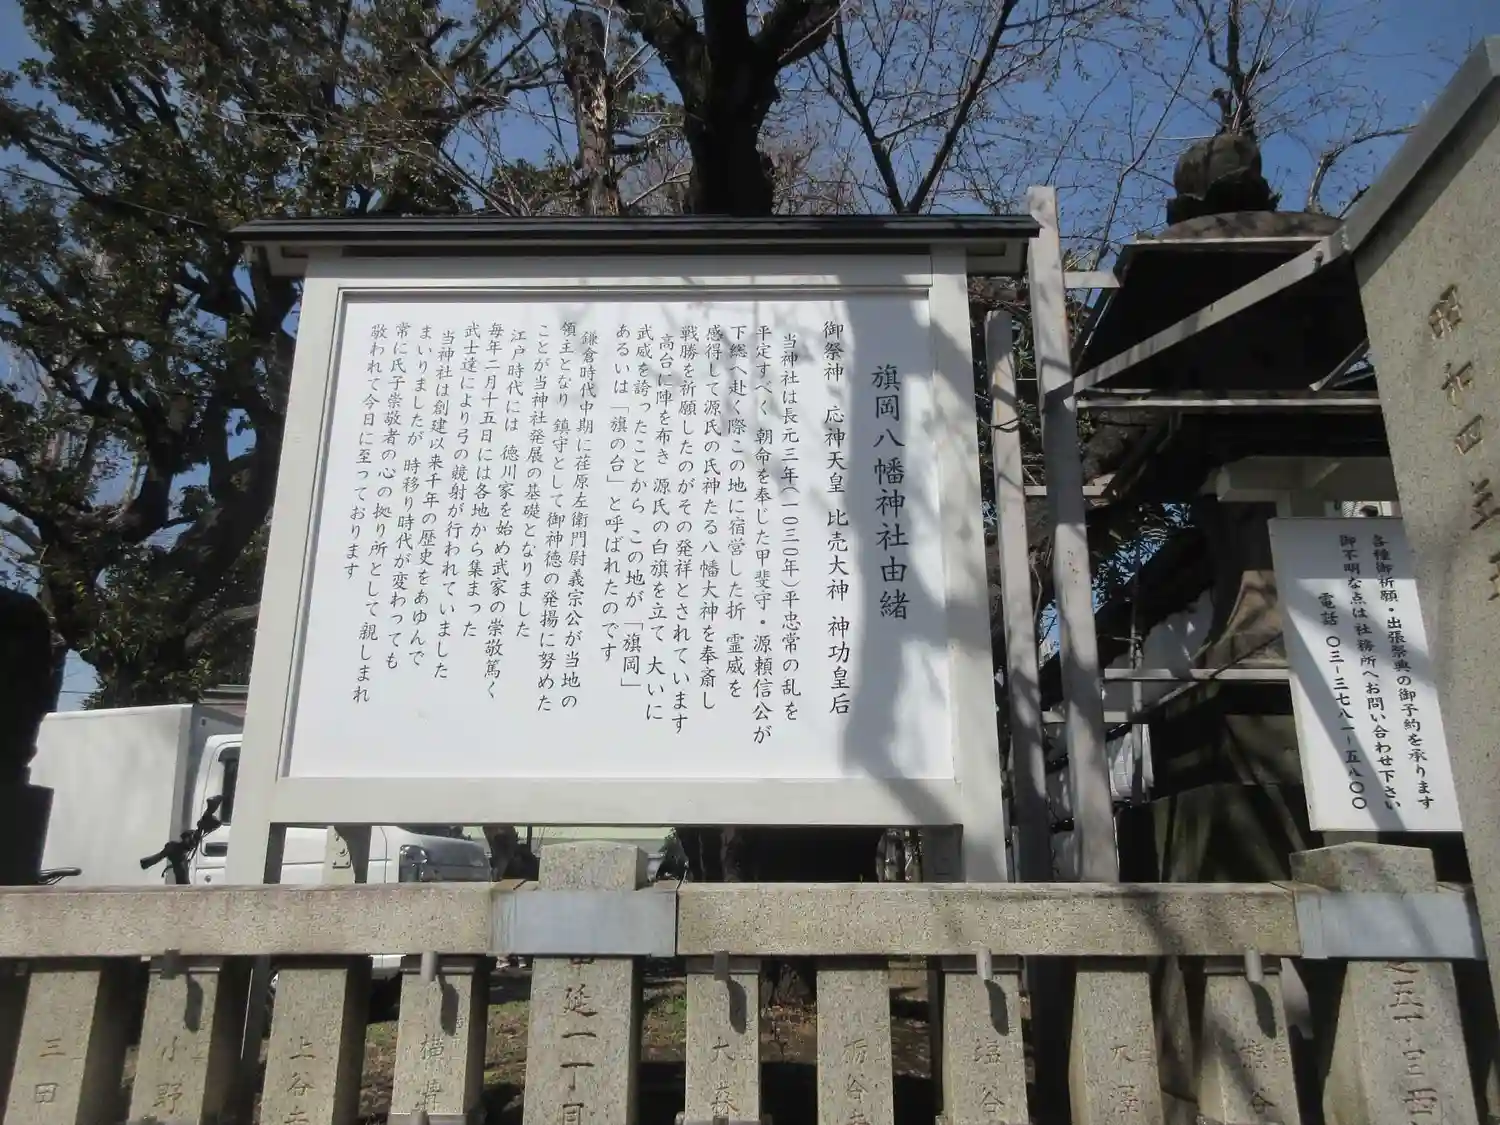 旗岡八幡神社由緒
御祭神 応神天皇 比売大神 神功皇后
当神社は長元三年(一〇三〇年)平忠常の乱を
平定すべく 朝命を奉じた甲斐守・源頼信公が
下総へ赴く際この地に宿営した折 霊威を
感得して源氏の氏神たる八幡大神を奉斎し
戦勝を祈願したのがその発祥とされています
高台に陣を布き 源氏の白旗を立て 大いに
武威を誇ったことから この地が「旗岡」
あるいは「旗の台」と呼ばれたのです
鎌倉時代中期に荏原左衛門尉義宗公が当地の
領主となり 鎮守として御神徳の発揚に努めた
ことが当神社発展の基礎となりました
江戸時代には 徳川家を始め武家の崇敬篤く
毎年二月十五日には各地から集まった
武士達により弓の競射が行われていました
当神社は創建以来千年の歴史をあゆんで
まいりましたが 時移り時代が変わっても
常に氏子崇敬者の心の拠り所として親しまれ
敬われて今日に至っております
各種御祈願・出張祭典の御予約を承ります
御不明な点は社務所へお問い合わせ下さい
電話 〇三-三七八一-五八〇〇
昭和四
三田
小野
上谷
横
延一丁目
大森
栃谷
塩谷
熊谷